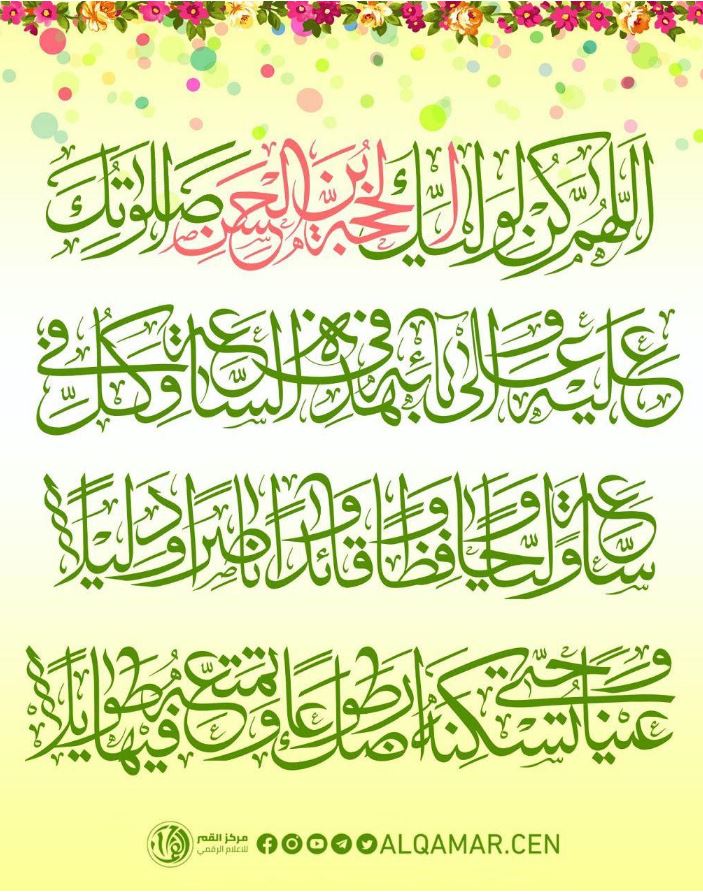 اَللّهُمَّ كُنْ لِوَلِيِّكَ الحُجَّةِ بْنِ الْحَسَنِ صَلَواتُكَ
عَلَيْهِ وَعَلى آبائِهِ في هذِهِ السّاعَةِ وَفي كُلِّ
ساعَةٍ وَلِيّاً وَحافِظاً وَقائِداً وَناصِراً وَدَليلاً
وَعَيْناً حَتّى تُسْكِنَهُ أَرْضَكَ طَوْعاً وَتُمَتِّعَهُ فيها طَويلاً
مركز القمر
للاعلام الرقمي
ALQAMAR.CEN